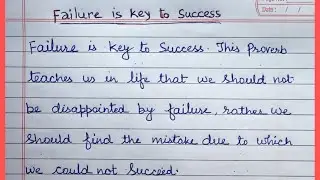 Failure is key to Success
Date: / /
Failure is key to Success. This Proverb
teaches us in life that we should not
be disappointed by failure, rather we
should find the mistake due to which
we could not Succeed.